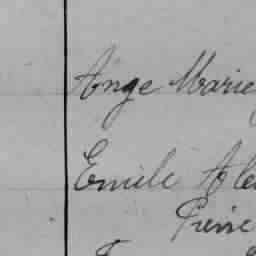 Ange Marie
Emile Ale
Pierre